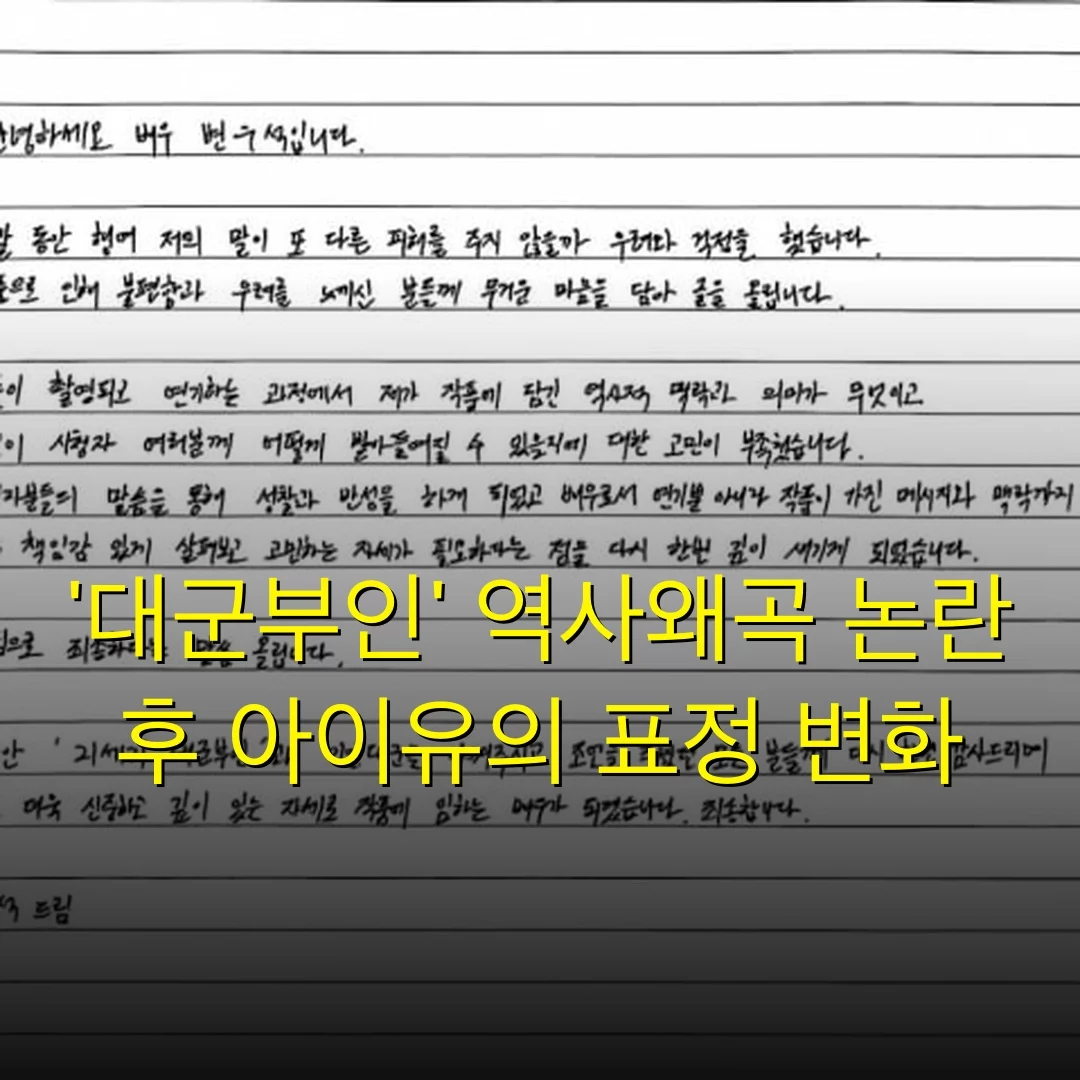 안녕하세요 배우 변우석입니다.
말 동안 혹여 저의 말이 또 다른 피해를 주지 않을까 우려와 걱정을 했습니다.
으로 인해 불편함과 우려를 느끼신 분들께 무거운 마음을 담아 글을 올립니다.
이 촬영되고 연기하는 과정에서 제가 작품에 담긴 역사적 맥락과 의미가 무엇이고
이 시청자 여러분께 어떻게 받아들여질 수 있을지에 대한 고민이 부족했습니다.
자분들의 말씀을 통해 성찰과 반성을 하게 되었고 배우로서 연기뿐 아니라 작품이 가진 메시지와 맥락까지
책임감 있게 살펴보고 고민하는 자세가 필요하다는 점을 다시 한번 깊이 새기게 되었습니다.
'대군부인' 역사왜곡 논란
으로 죄송하다는 말씀 올립니다.
후 아이유의 표정 변화
안 '21세기 대군부인' 분들께 다시 감사드리며
더욱 신중하고 깊이 있는 자세로 작품에 임하는 배우가 되겠습니다. 죄송합니다.
석 드림